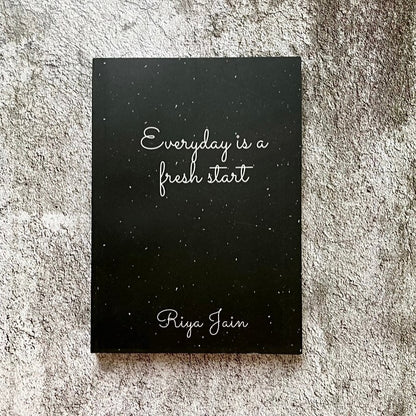 Everyday is a
fresh start
Riya Jain